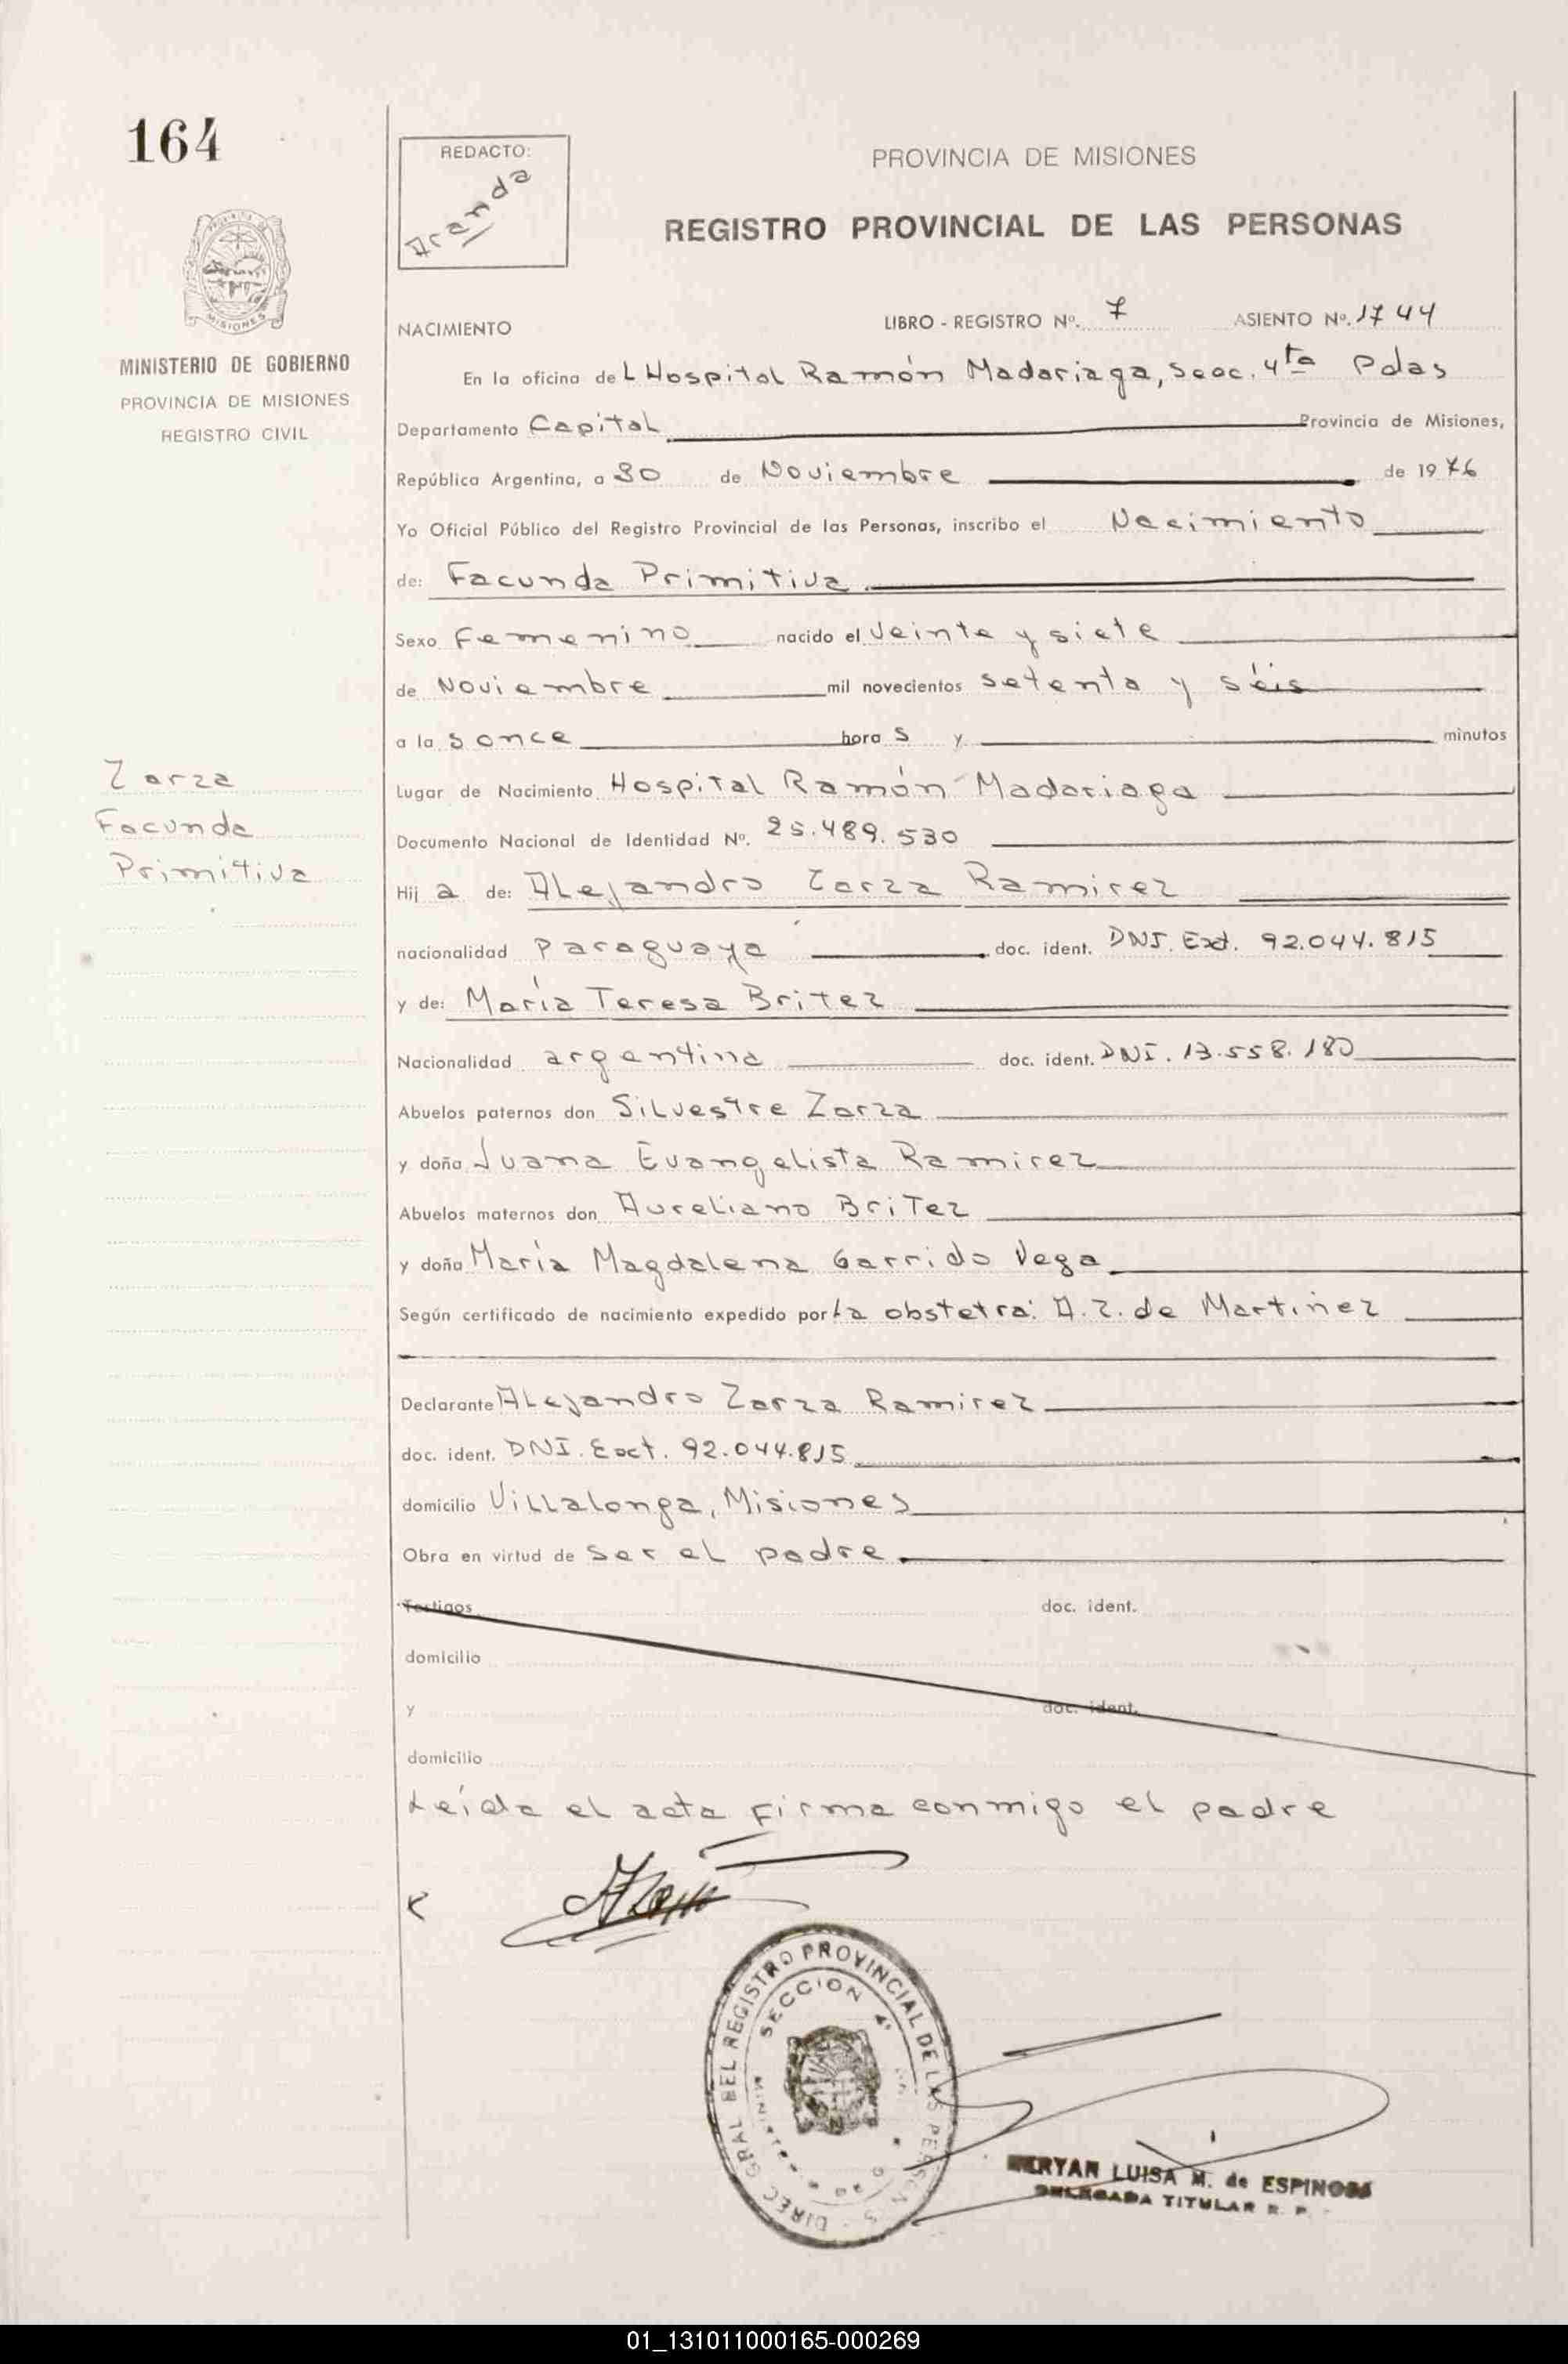 164
REDACTO:
Aranda
PROVINCIA DE MISIONES
REGISTRO PROVINCIAL DE LAS PERSONAS
MISIONES
MINISTERIO DE GOBIERNO
PROVINCIA DE MISIONES
REGISTRO CIVIL
NACIMIENTO LIBRO - REGISTRO Nº. 7 ASIENTO Nº. 1744
En la oficina del Hospital Ramón Madariaga, Secc. 4ta Pdas
Departamento Capital Provincia de Misiones,
República Argentina, a 30 de Noviembre de 1976
Yo Oficial Público del Registro Provincial de las Personas, inscribo el Nacimiento
de: Facunda Primitiva
Sexo Femenino nacido el veinte y siete
de Noviembre mil novecientos setenta y séis
a las once horas y minutos
Zarza
Facunda
Primitiva
Lugar de Nacimiento Hospital Ramón Madariaga
Documento Nacional de Identidad Nº. 25.489.530
Hija de: Alejandro Zarza Ramirez
nacionalidad Paraguaya doc. ident. DNI. Ext. 92.044.815
y de: María Teresa Britez
Nacionalidad argentina doc. ident. DNI. 13.558.180
Abuelos paternos don Silvestre Zarza
y doña Juana Evangelista Ramirez
Abuelos maternos don Aureliano Britez
y doña María Magdalena Garrido Vega
Según certificado de nacimiento expedido por la obstetra: A.Z. de Martinez
Declarante Alejandro Zarza Ramirez
doc. ident. DNI. Ext. 92.044.815
domicilio Villalonga, Misiones
Obra en virtud de ser el padre
Testigos doc. ident.
domicilio
y doc. ident.
domicilio
Leída el acta firma conmigo el padre
DIREC. GRAL DEL REGISTRO PROVINCIAL DE LAS PERSONAS
SECCION 4ª
MERYAN LUISA M. de ESPINOSA
DELEGADA TITULAR R. P.
01_131011000165-000269